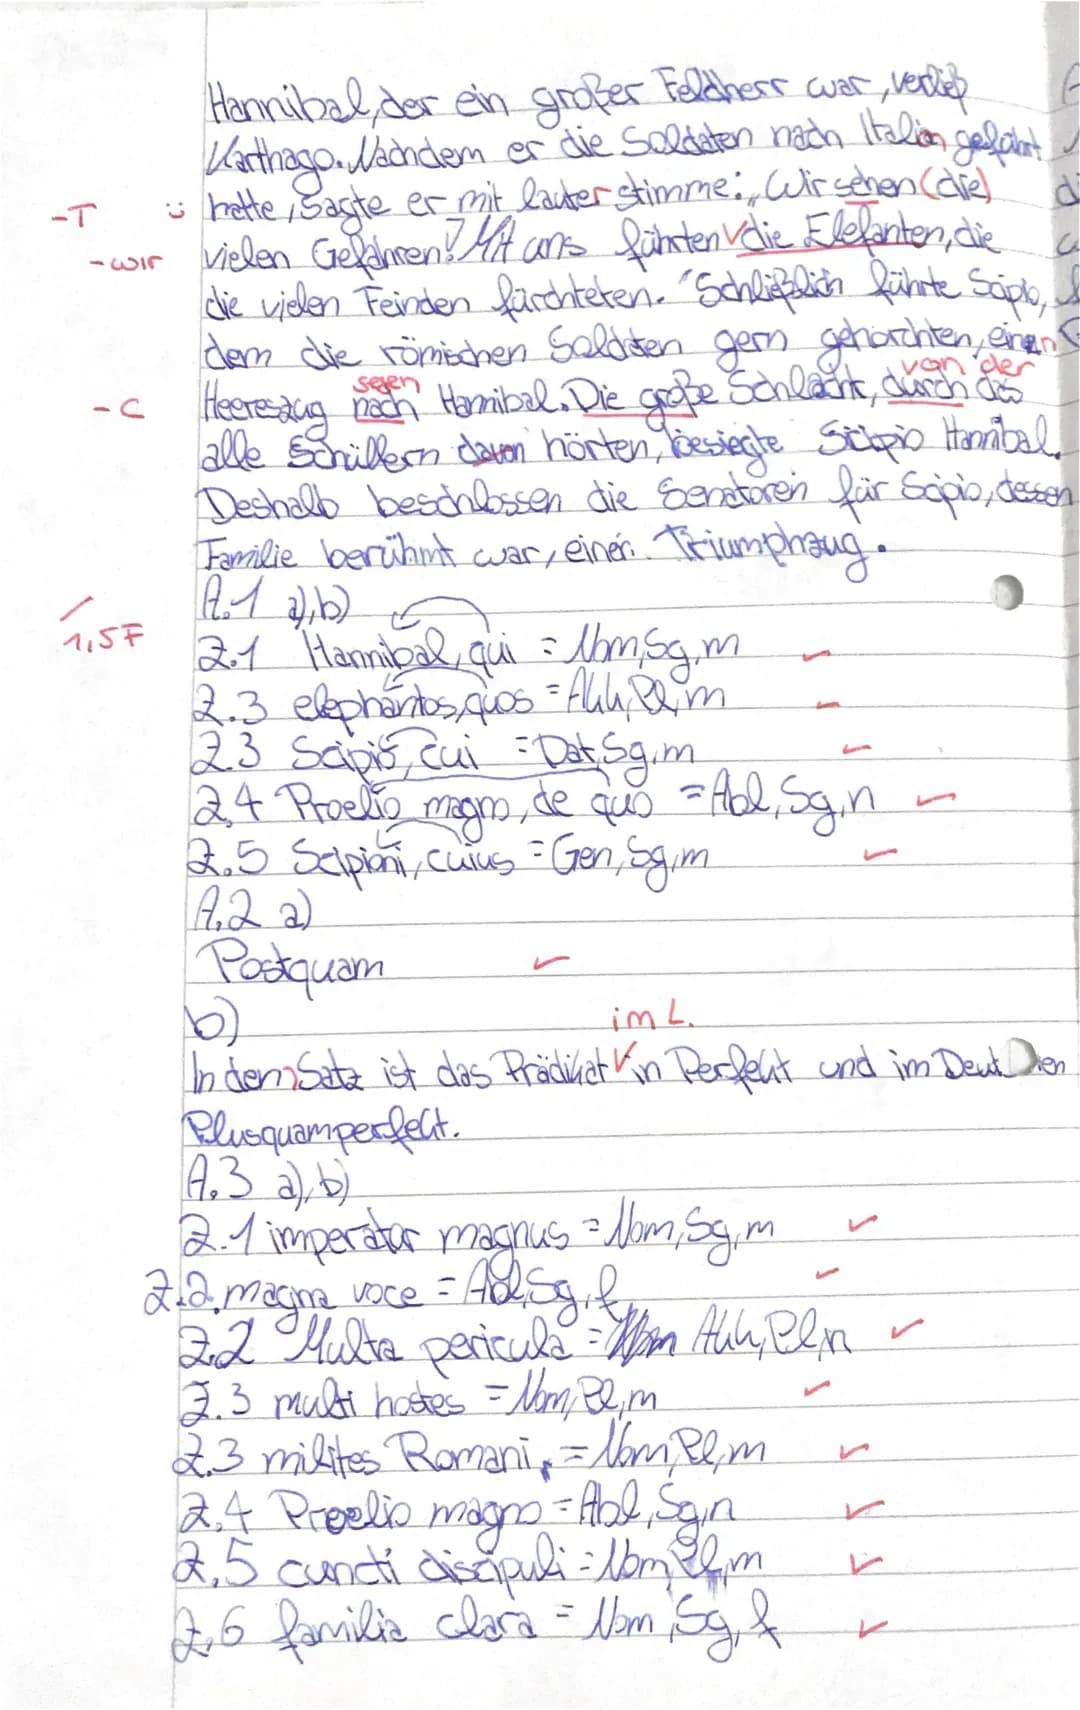 Hannibal, der ein großer Feldherr war, verließ
Karthago. Nachdem er die Soldaten nach Italien geführt
-T hatte, sagte er mit lauter stimme: „Wir sehen (die)
-wir vielen Gefahren! Mit uns führten √ die Elefanten, die
die vielen Feinden fürchteten." Schließlich führte Scipio,
dem die römischen Soldaten gern gehorchten, einen
gegen von der
-C Heereszug nach Hannibal. Die große Schlacht, durch das
alle Schüllern davon hörten, besiegte Scipio Hannibal.
Deshalb beschlossen die Senatoren für Scipio, dessen
Familie berühmt war, einen Triumphzug.
A.1 a), b)
1,5F
Z.1 Hannibal, qui = Nom, Sg, m
Z.3 elephantos, quos = Akk, Pl, m
Z.3 Scipio, cui = Dat, Sg, m
Z.4 Proelio magno, de quo = Abl, Sg, n
Z.5 Scipioni, cuius = Gen, Sg, m
A.2 a)
Postquam
b)
im L.
In dem Satz ist das Prädikat √ in Perfekt und im
Plusquamperfekt.
A.3 a), b)
Z.1 imperator magnus = Nom, Sg, m
Z.2. magna voce = Abl, Sg, f
Z.2 Multa pericula = Akk, Pl, n
Z.3 multi hostes = Nom, Pl, m
Z.3 milites Romani, = Nom, Pl, m
Z.4 Proelio magno = Abl, Sg, n
Z.5 cuncti discipuli = Nom, Pl, m
Z.6 familia clara = Nom, Sg, f